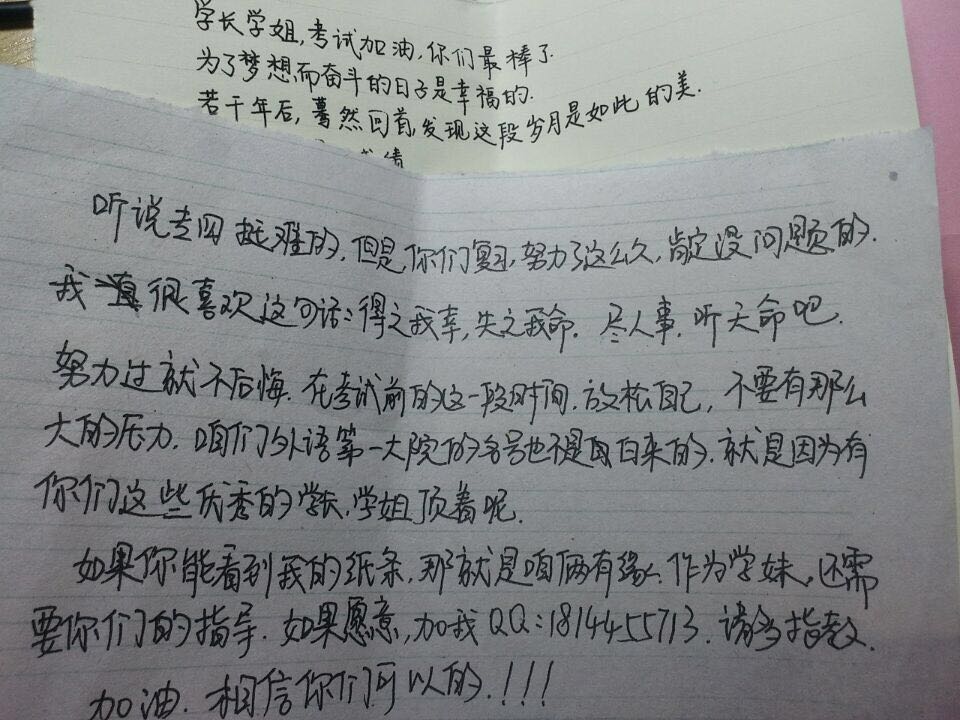 学长学姐,考试加油,你们最棒了.
为了梦想而奋斗的日子是幸福的.
若干年后,蓦然回首,发现这段岁月是如此的美.
成绩
听说专四挺难的,但是,你们复习,努力了这么久,肯定没问题的.
我很喜欢这句话:得之我幸,失之我命. 尽人事.听天命吧.
努力过就不后悔.在考试前的这一段时间.放松自己,不要有那么
大的压力.咱们外语第一大院的名号也不是白来的.就是因为有
你们这些优秀的学长,学姐顶着呢.
如果你能看到我的纸条,那就是咱俩有缘.作为学妹,还需
要你们的指导.如果愿意,加我QQ:1814455713.请多指教.
加油.相信你们可以的.!!!